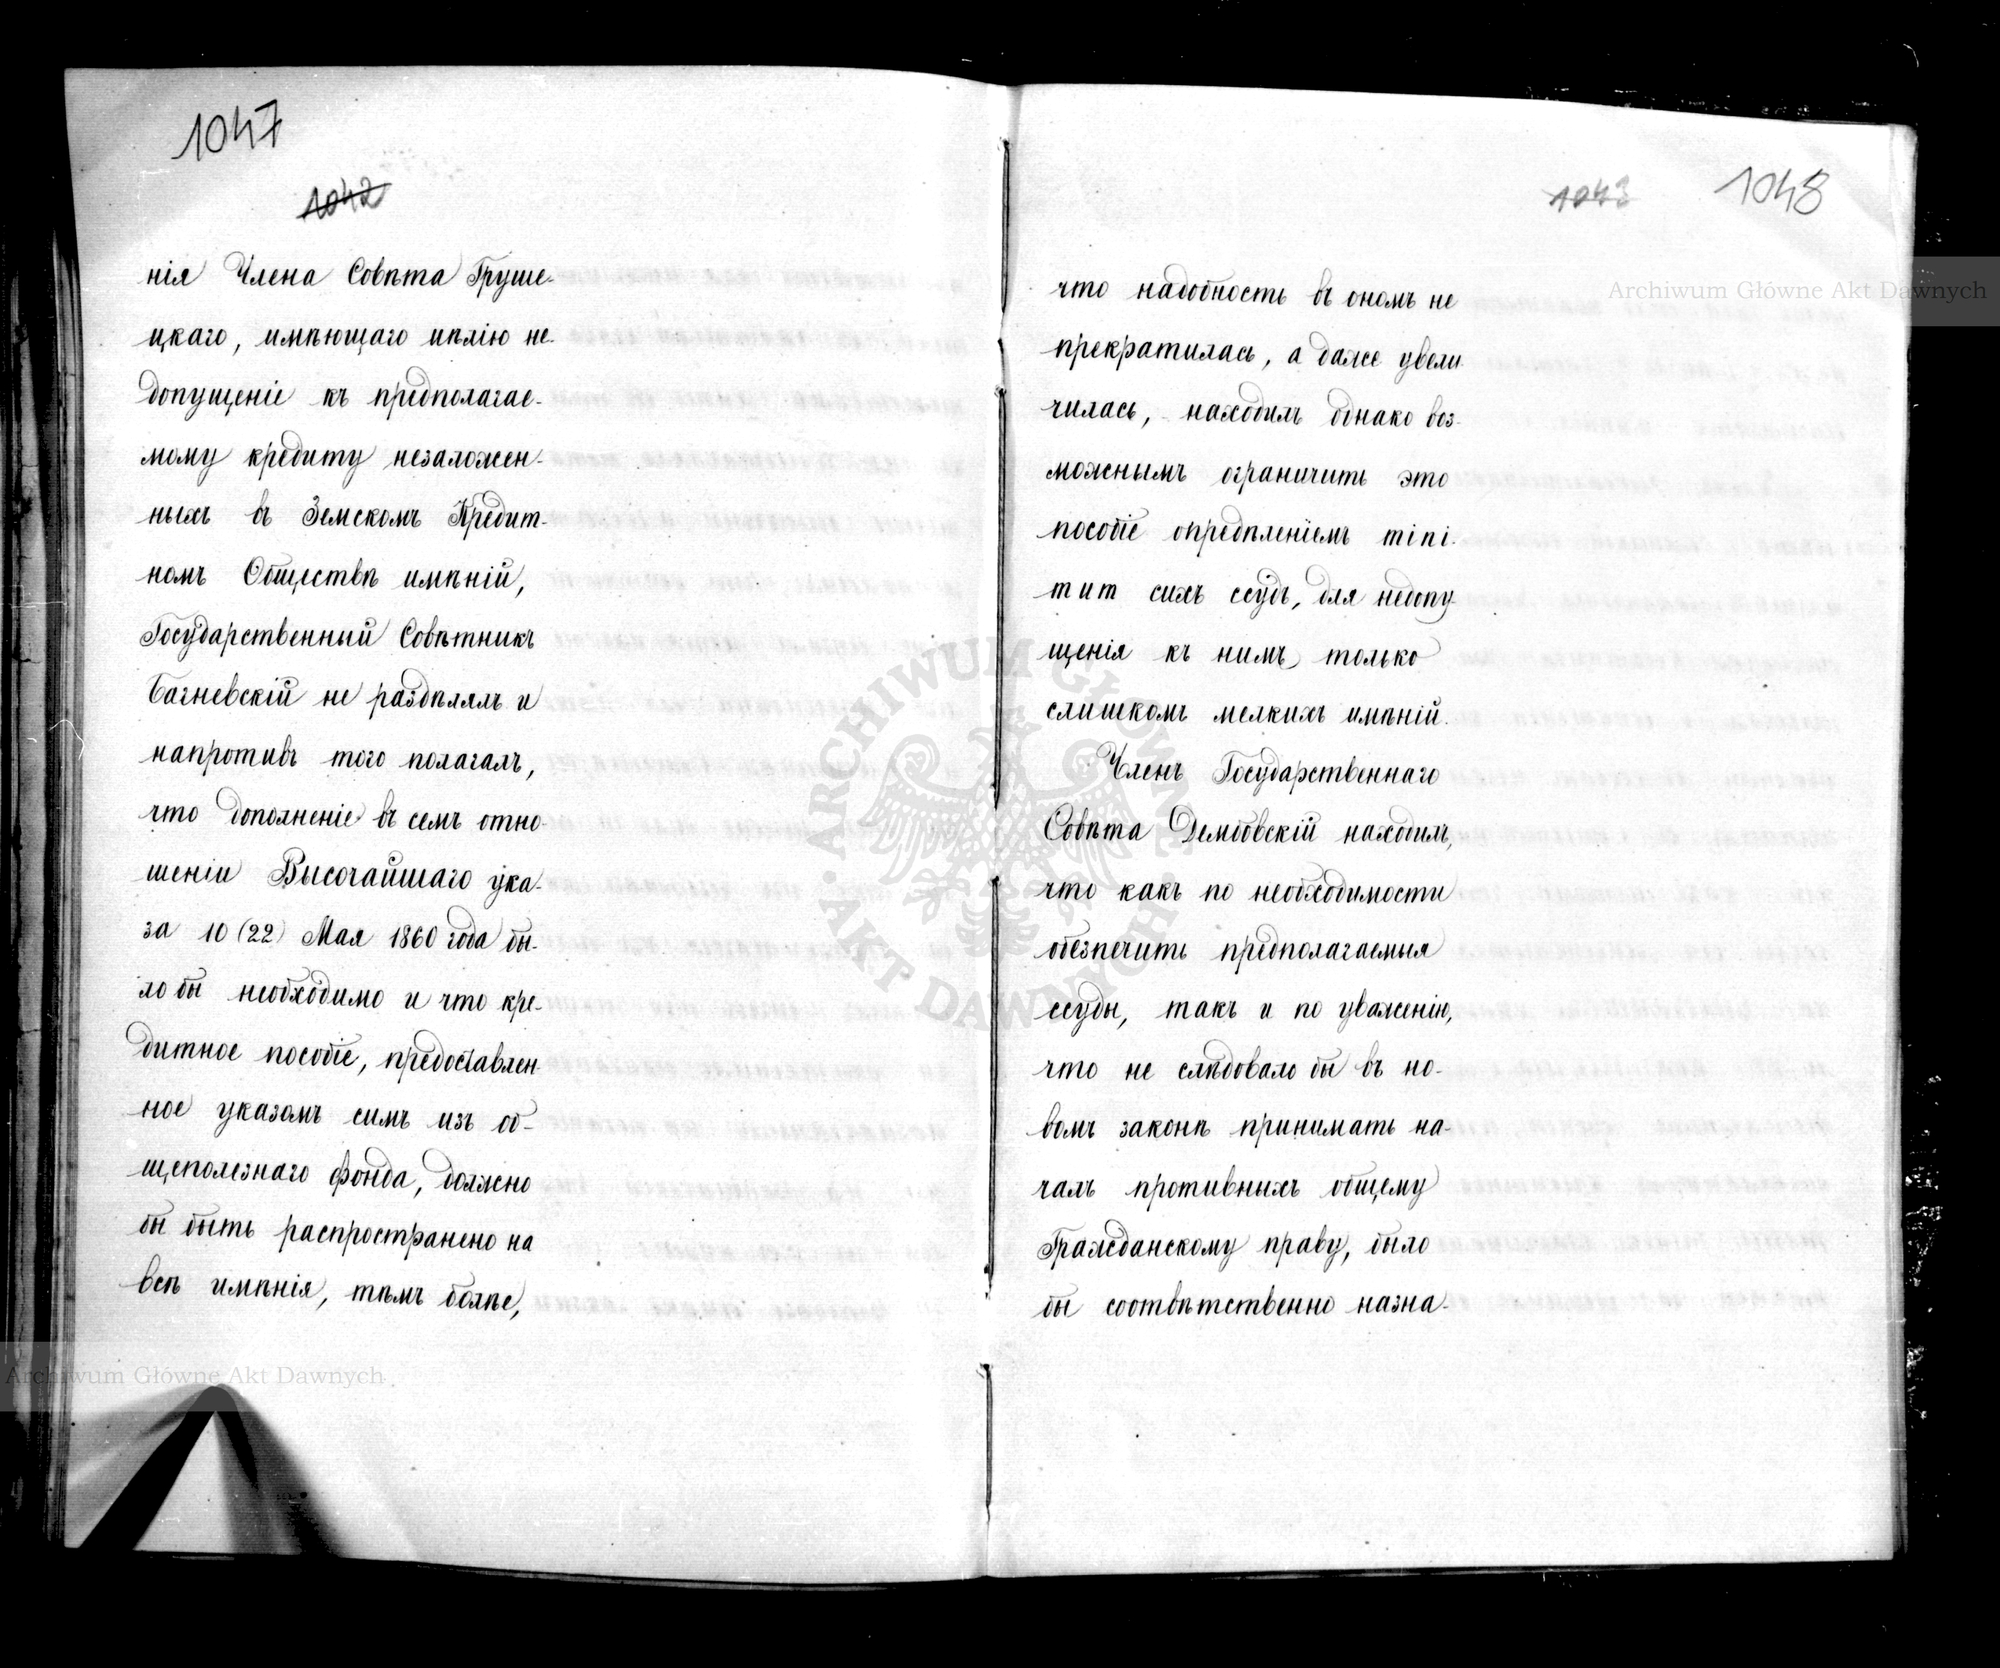 1047
1042
нія Члена Совѣта Груше-
цкаго, имѣющаго цѣлію не-
допущеніе къ предполагае-
мому кредиту незаложен-
ныхъ въ Земскомъ Кредит-
номъ Обществѣ имѣній,
Государственный Совѣтникъ
Багневскій не раздѣлялъ и
напротивъ того полагалъ,
что дополненіе въ семъ отно-
шеніи Высочайшаго ука-
за 10 (22) Мая 1860 года бы-
ло бы необходимо и что кре-
дитное пособіе, предоставлен-
ное указомъ симъ изъ об-
щеполезнаго фонда, должно
бы быть распространено на
всѣ имѣнія, тѣмъ болѣе,
1043 1048
что надобность въ ономъ не
прекратилась, а даже увели-
чилась, находилъ однако воз-
можнымъ ограничить это
пособіе опредѣленіемъ mini-
mum сихъ ссудъ, для недопу-
щенія къ нимъ только
слишкомъ мелкихъ имѣній.
Членъ Государственнаго
Совѣта Дембовскій находилъ,
что какъ по необходимости
обезпечить предполагаемыя
ссуды, такъ и по уваженію,
что не слѣдовало бы въ но-
вомъ законѣ принимать на-
чалъ противныхъ общему
Гражданскому праву, было
бы соотвѣтственно назна-
Archiwum Główne Akt Dawnych
Archiwum Główne Akt Dawnych
ARCHIWUM GŁÓWNE AKT DAWNYCH